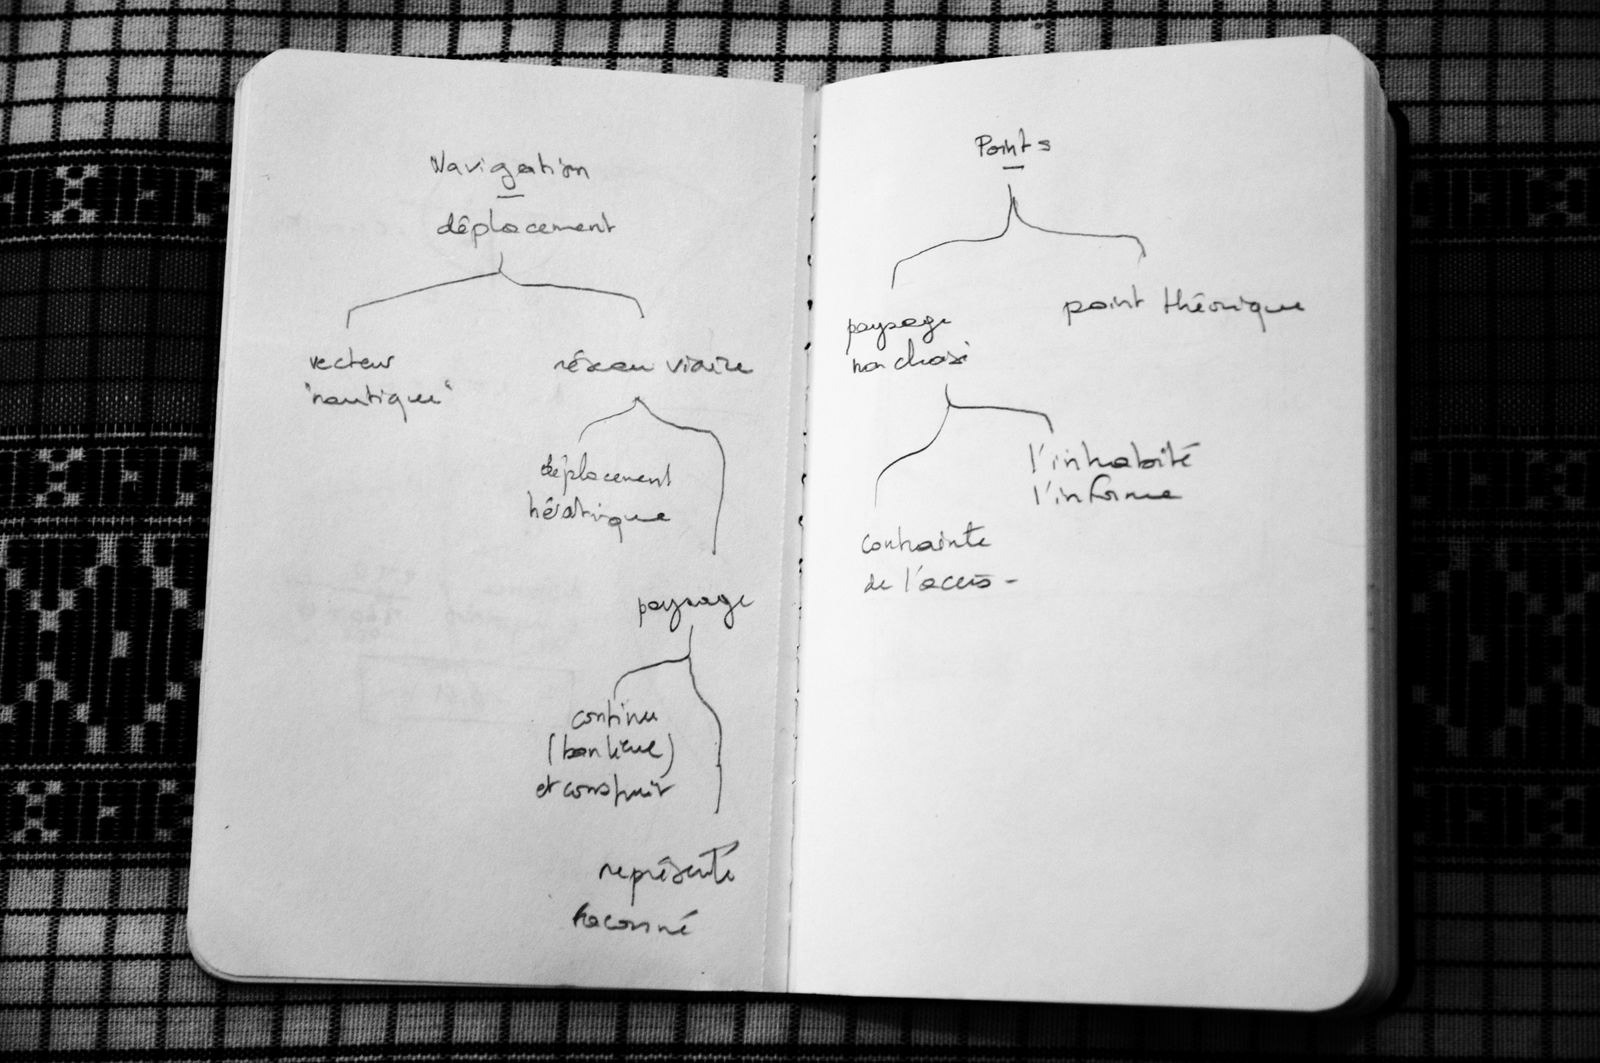 Navigation
déplacement
vecteur
"nautique"
réseau viaire
déplacement
paysage
continu
(banlieue)
et construit
représenté
Points
paysage
non choisi
point théorique
l'inhabité
l'informe
contrainte
de l'accès -